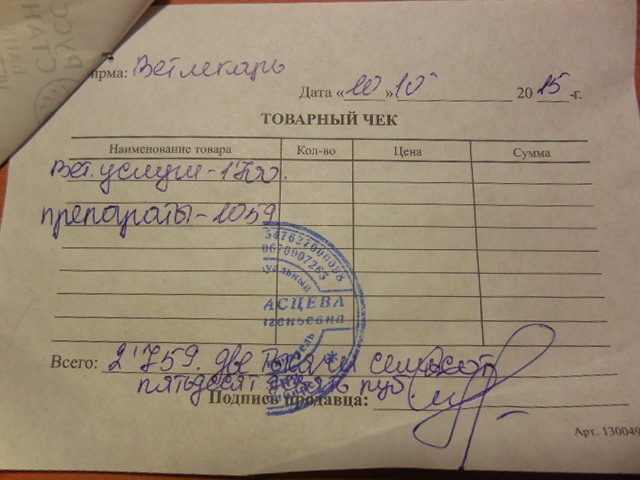 РУСС
СТАН
БАНК
ирма: Ветлекарь
Дата «10» 10 2015 г.
ТОВАРНЫЙ ЧЕК
Наименование товара Кол-во Цена Сумма
Вет. услуги - 1700.
препараты - 1059
АСЦЕВА
ГЕНЬЕВНА
Всего: 2'759. две тысячи семьсот
пятьдесят девять руб.
Подпись продавца:
Арт. 130049